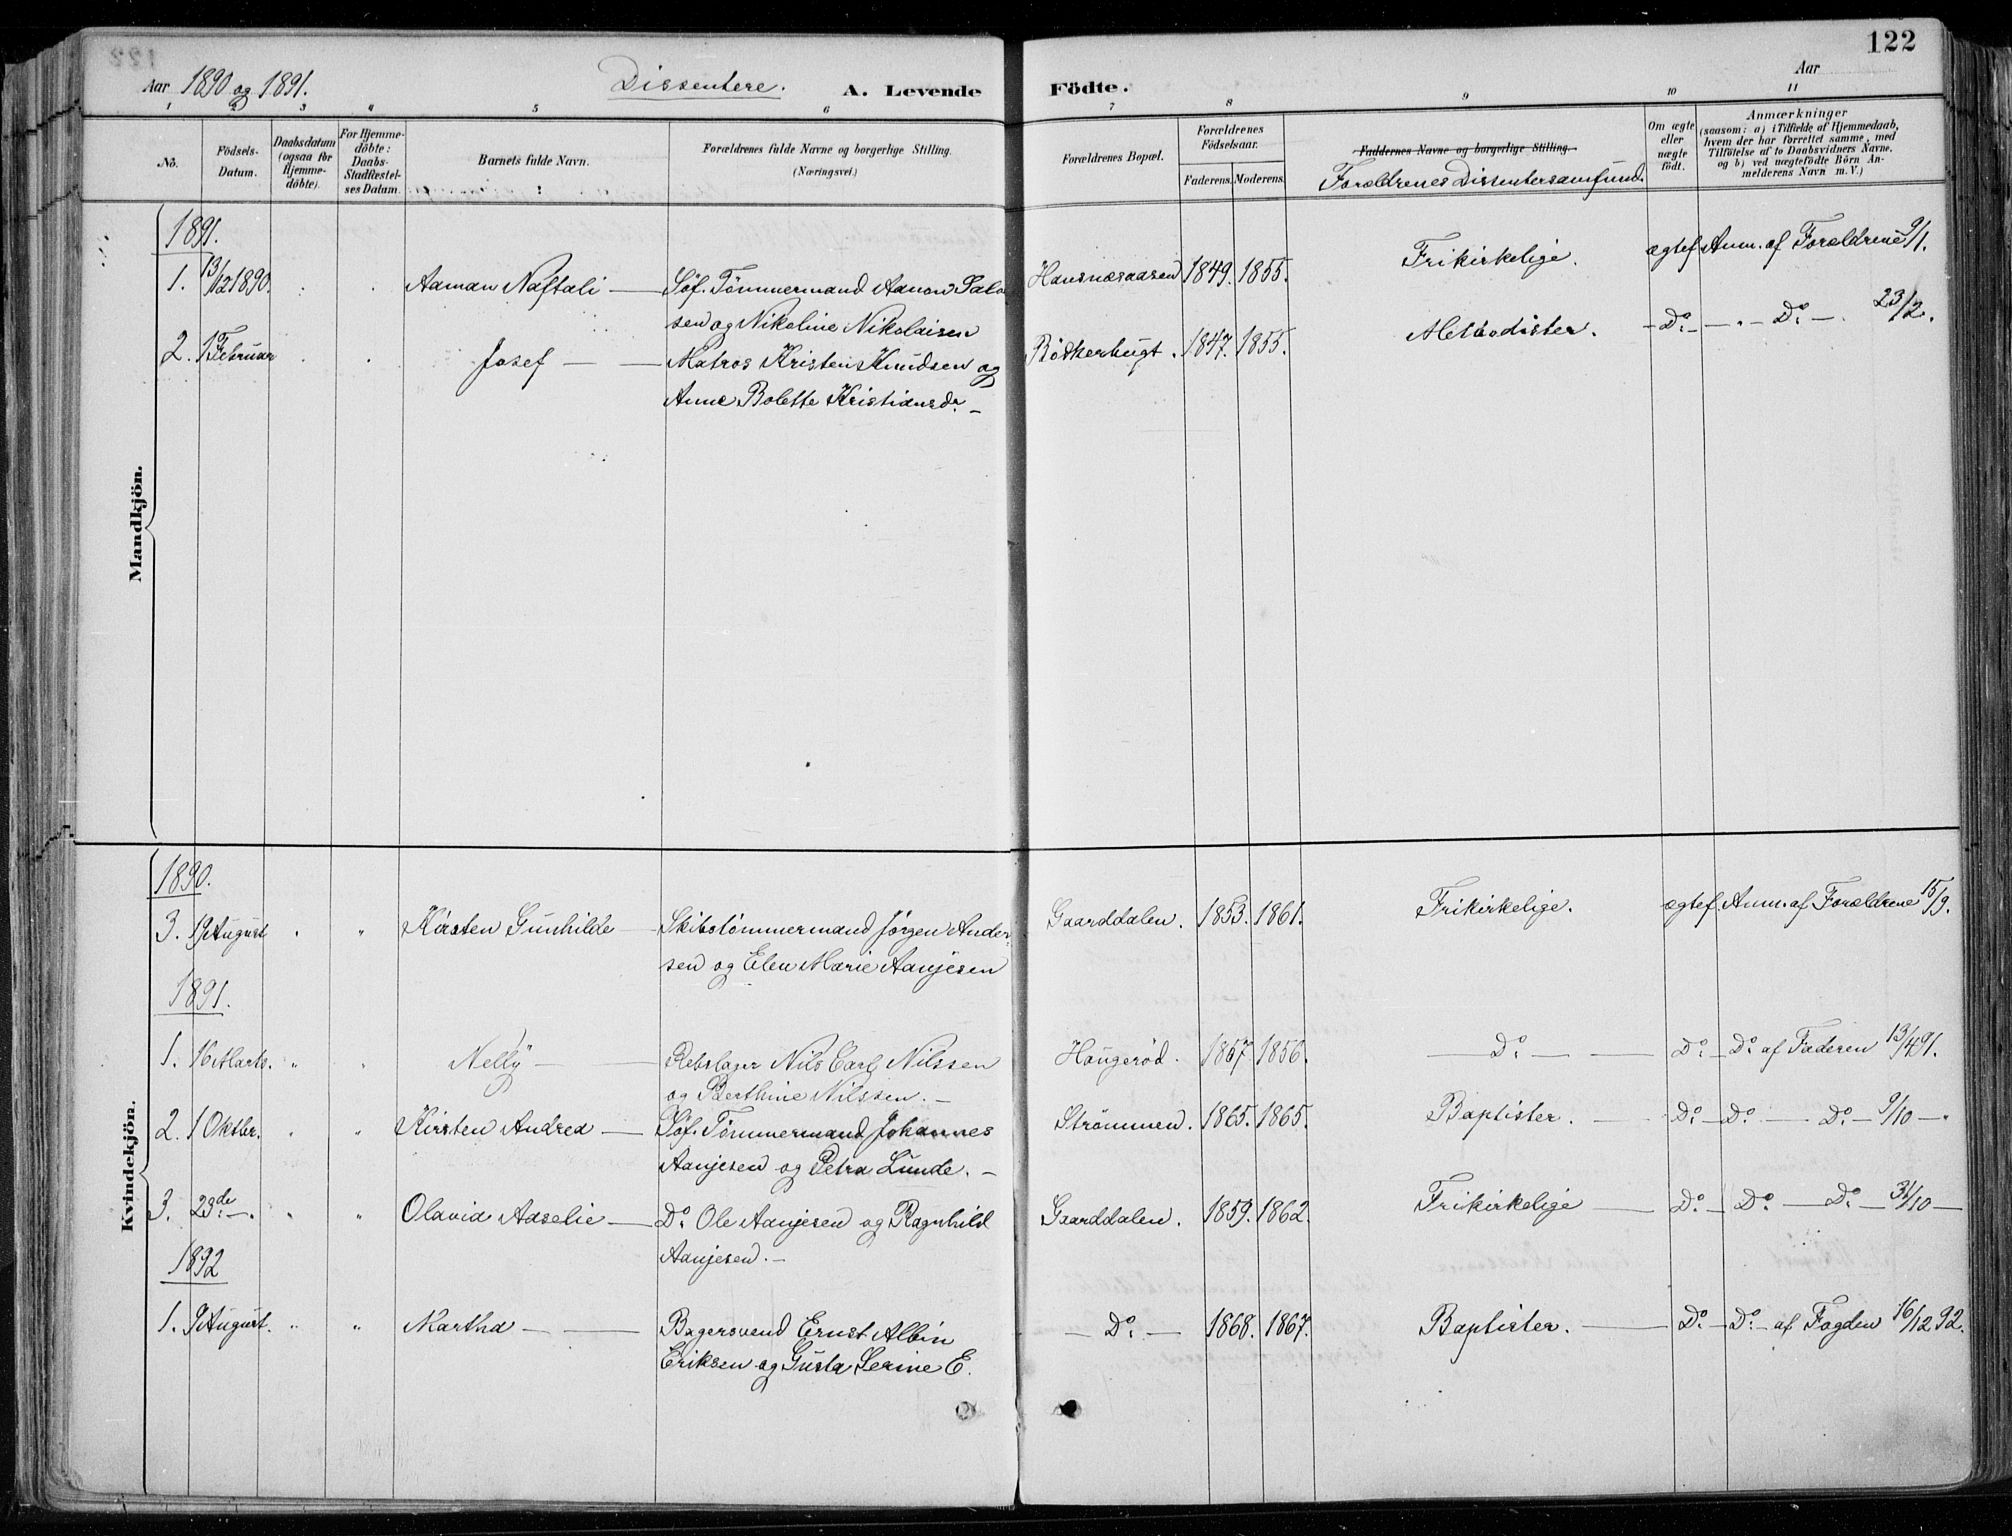 122
Aar 1890 og 1891. Dissentere. A. Levende Födte. Aar
1 2 3 4 5 6 7 8 9 10 11
Nô. Födsels-Datum. Daabsdatum (ogsaa for Hjemme-döbte). For Hjemme-döbte: Daabs-Stadfæstel-ses Datum. Barnets fulde Navn. Forældrenes fulde Navne og borgerlige Stilling. (Næringsvei.) Forældrenes Bopæl. Forældrenes Födselsaar. Faderens. Moderens. Faddernes Navne og borgerlige Stilling. Forældrenes Dissentersamfund. Om ægte eller uægte födt. Anmærkninger (saasom: a) i Tilfælde af Hjemmedaab, hvem der har forrettet samme, med Tilföielse af to Daabsvidners Navne. og b) ved uægtefödte Börn An-melderens Navn m. V.)
Mandkjön.
1891.
1. 13/12 1890. " " Aaman Naftali — Söf. Tömmermand Aanon Salo Hausnæsaasen 1849. 1855. Frikirkelige. ægtef. Anm. af Forældrene 9/1.
sen og Nikoline Nikolaisen
2. 1 Februar " " Josef — Matros Kristen Knudsen og Rödkerbugt. 1847. 1855. Methodister. — Do — " — Do — 23/2.
Anne Bolette Kristiansdr —
Kvindekjön.
1890.
3. 19 August " " Kirsten Gunhilde — Skibstömmermand Jörgen Ander- Gaarddalen. 1853. 1861. Frikirkelige. ægtef. Anm. af Forældrene 15/9.
sen og Elen Marie Aanjesen
1891.
1. 16 Marts. " " Nelly — Rebslager Nils Carl Nilssen Haugeröd. 1867. 1856. — Do — Do — Do af Faderen 13/4 91.
og Berthine Nilssen. —
2. 1 Oktbr. " " Kirsten Andrea — Söf. Tömmermand Johannes Strömmen. 1865. 1865. Baptister. — Do — Do — Do — 9/10 — "
Aanjesen og Petra Lunde. —
3. 23de — " " Olavia Adselie — Do Ole Aanjesen og Ragnhild Gaarddalen. 1859. 1862. Frikirkelige — Do — Do — Do — 31/10 —
Aanjesen. —
1892
1. 9 August. " " Martha — Bagersvend Ernst Albin — Do — 1868. 1867. Baptister. — Do — Do — af Fogden 16/12 92.
Eriksen og Gusta Serine E.